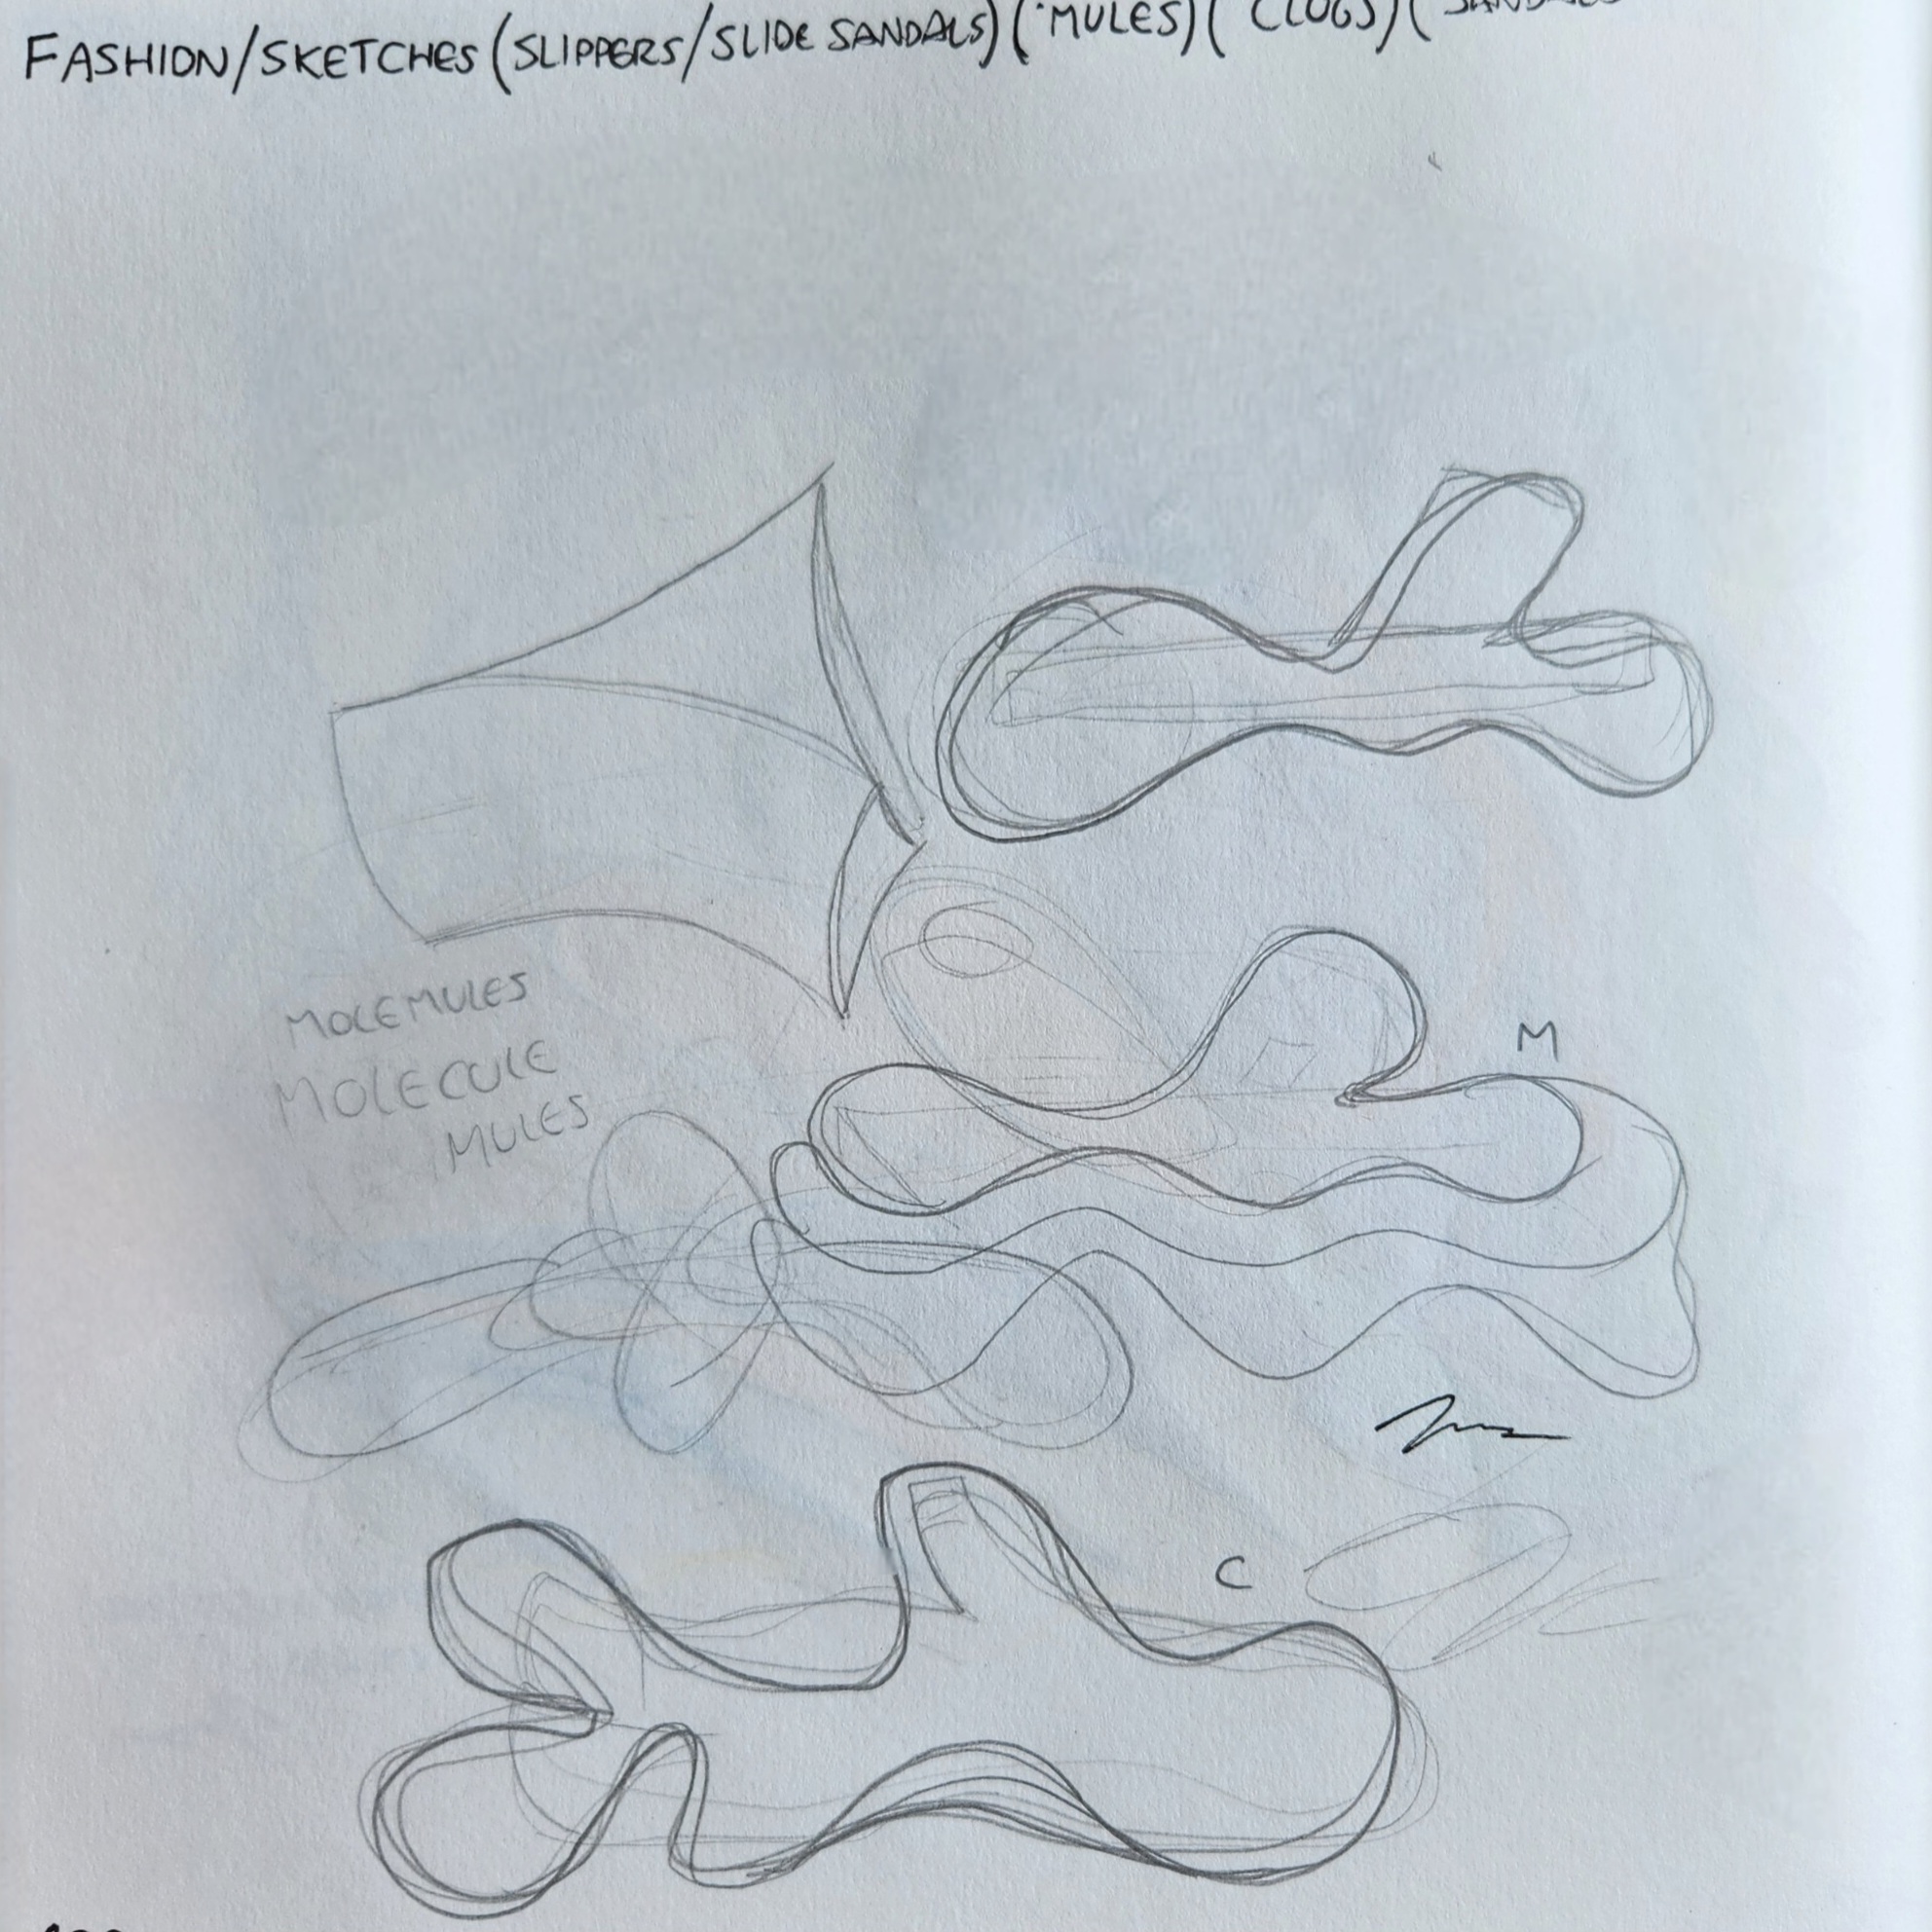 FASHION/SKETCHES (SLIPPERS/SLIDE SANDALS) ("MULES) (" CLOGS) ( SANDALS
MOLEMULES
MOLECULE
MULES
M
C